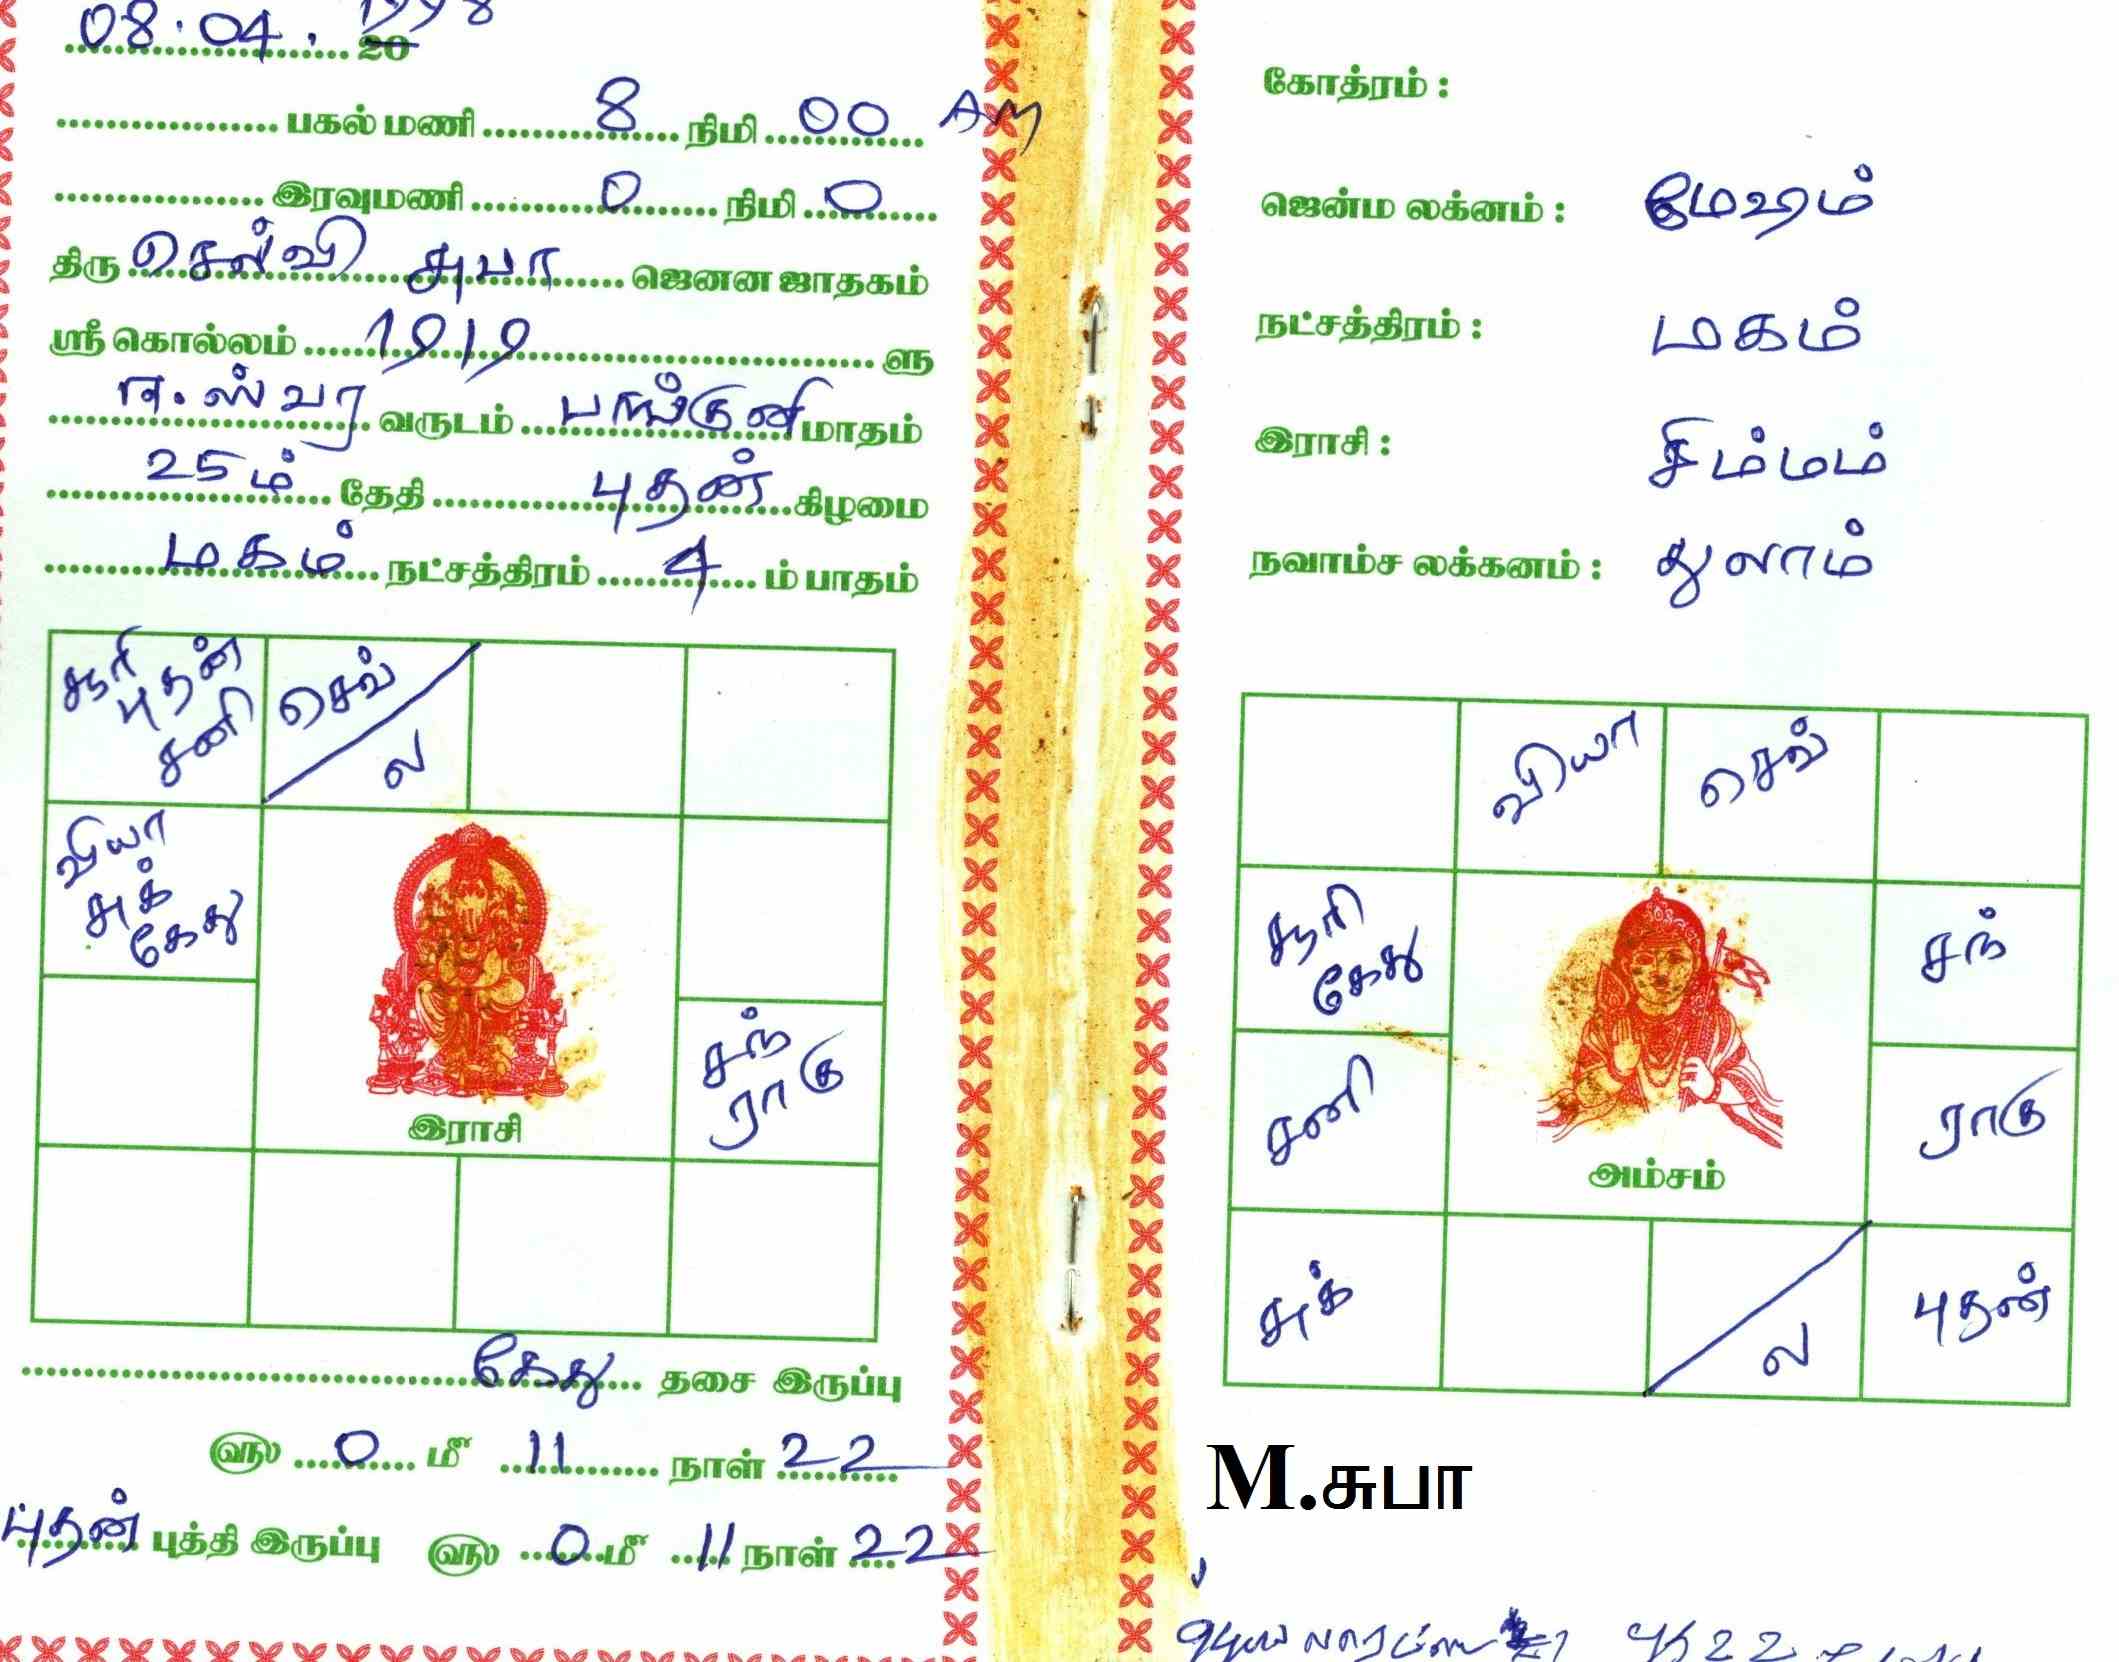 08.04. 1998 20
பகல் மணி 8 நிமி 00 AM
இரவுமணி 0 நிமி 0
திரு செல்வி சுபா ஜெனன ஜாதகம்
ஸ்ரீ கொல்லம் 1919 ளு
ஈஸ்வர வருடம் பங்குனி மாதம்
25ம் தேதி புதன் கிழமை
மகம் நட்சத்திரம் 4 ம் பாதம்
சூரி புதன் சனி செவ் ல
வியா சுக் கேது
சந் ராகு
இராசி
கேது தசை இருப்பு
௵ 0 மீ 11 நாள் 22
புதன் புத்தி இருப்பு ௵ 0 மீ 11 நாள் 22
கோத்ரம் :
ஜென்ம லக்னம் : மேஷம்
நட்சத்திரம் : மகம்
இராசி : சிம்மம்
நவாம்ச லக்கனம் : துலாம்
வியா செவ்
சூரி கேது சந்
சனி ராகு
அம்சம்
சுக் ல புதன்
M.சுபா